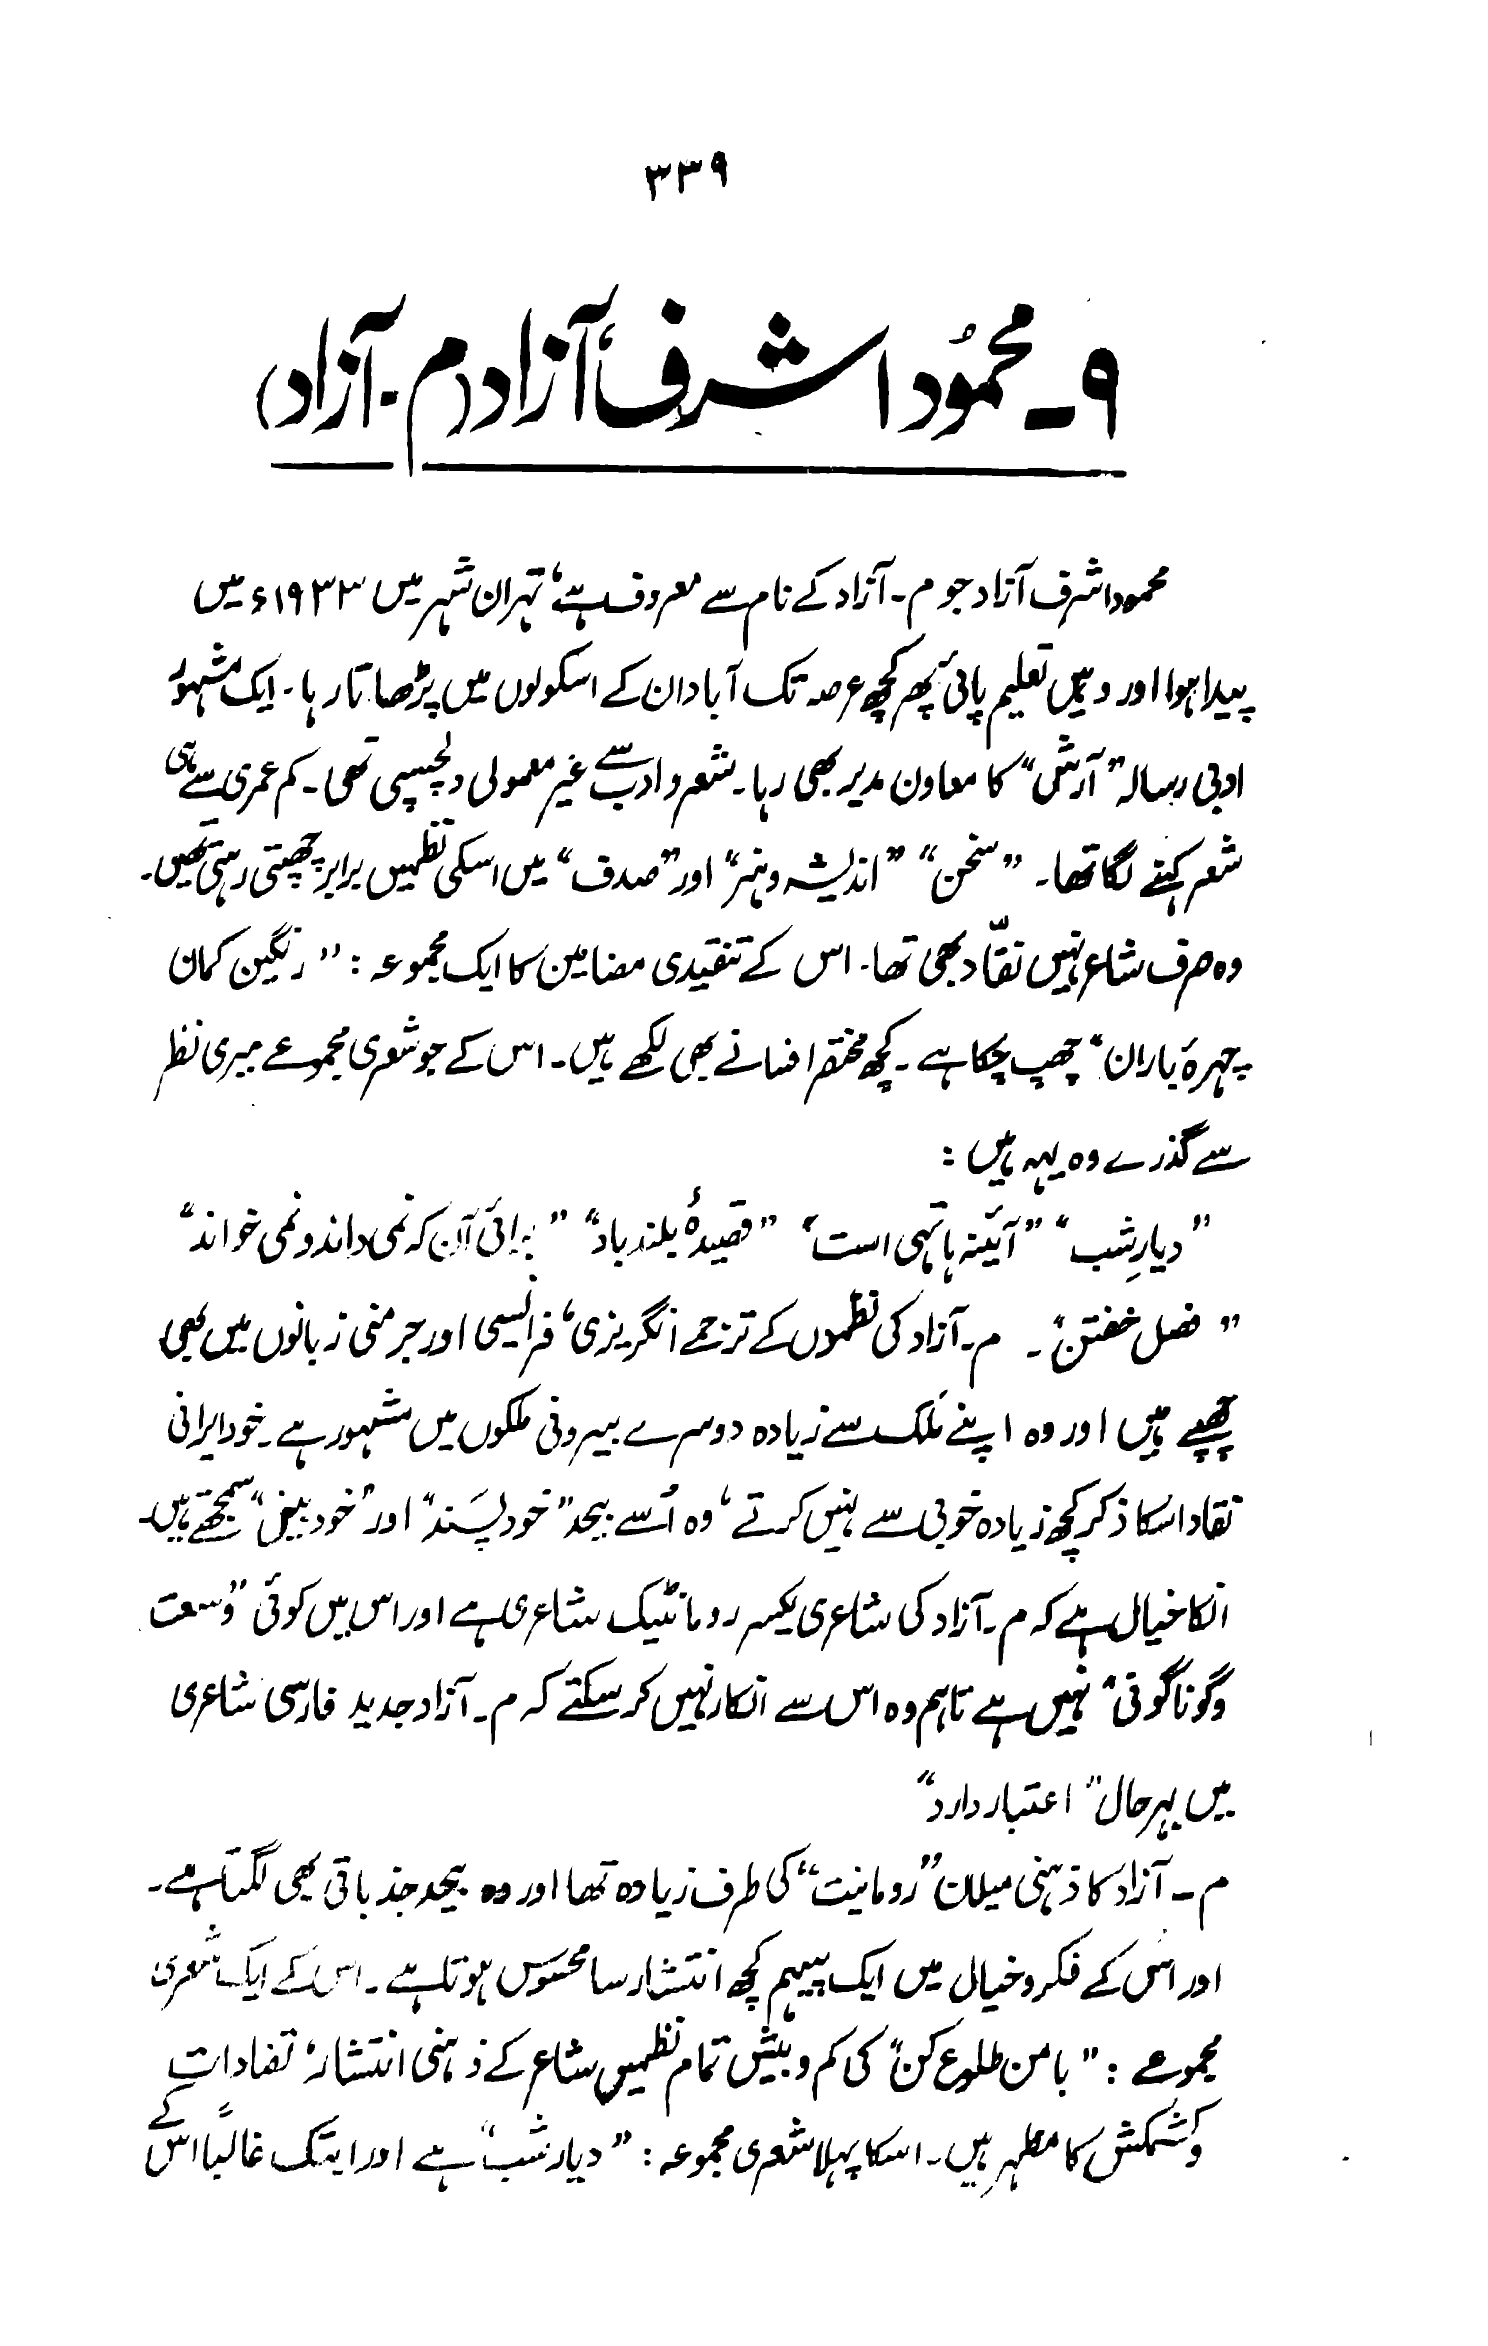 ۳۳۹
۹۔ محمُود اشرف آزاد (م۔ آزاد)
محمود اشرف آزاد جو م۔ آزاد کے نام سے معروف ہے، تہران شہر میں ۱۹۳۳ء میں
پیدا ہوا اور وہیں تعلیم پائی پھر کچھ عرصہ تک آبادان کے اسکولوں میں پڑھاتا رہا۔ ایک مشہور
ادبی رسالہ "آرش" کا معاون مدیر بھی رہا۔ شعر و ادب سے غیر معمولی دلچسپی تھی۔ کم عمری سے ہی
شعر کہنے لگا تھا۔ "سخن" "اندیشہ و ہنر" اور "صدف" میں اسکی نظمیں برابر چھپتی رہتی تھیں۔
وہ صرف شاعر نہیں نقّاد بھی تھا۔ اس کے تنقیدی مضامین کا ایک مجموعہ: "رنگین کمان
چہرۂ باران" چھپ چکا ہے۔ کچھ مختصر افسانے بھی لکھے ہیں۔ اس کے جو شعری مجموعے میری نظر
سے گذرے وہ یہہ ہیں:
"دیارِ شب" "آئینہ ہا تہی است" "قصیدۂ بلند باد" "برائی آن کہ نمی داند و نمی خواند"
"فصل خفتن"۔ م۔ آزاد کی نظموں کے ترجمے انگریزی، فرانسیسی اور جرمنی زبانوں میں بھی
چھپے ہیں اور وہ اپنے مُلک سے زیادہ دوسرے بیرونی ملکوں میں مشہور ہے۔ خود ایرانی
نقاد اسکا ذکر کچھ زیادہ خوبی سے نہیں کرتے، وہ اُسے بیحد "خود پسَند" اور "خود بین" سمجھتے ہیں۔
انکا خیال ہے کہ م۔ آزاد کی شاعری یکسر رومانٹیک شاعری ہے اور اس میں کوئی "وسعت
و گوناگونی" نہیں ہے تاہم وہ اس سے انکار نہیں کر سکتے کہ م۔ آزاد جدید فارسی شاعری
میں بہر حال "اعتبار دارد"
م۔ آزاد کا ذہنی میلان "رُومانیت" کی طرف زیادہ تھا اور وہ بیحد جذباتی بھی لگتا ہے۔
اور اُس کے فکر و خیال میں ایک پیہم کچھ انتشار سا محسوس ہوتا ہے۔ اس کے ایک شعری
مجموعے: "با من طلوع کن" کی کم و بیش تمام نظمیں شاعر کے ذہنی انتشار، تضادات
و کشمکش کا مظہر ہیں۔ اسکا پہلا شعری مجموعہ: "دیار شب" ہے اور ابتک غالبًا اس کے